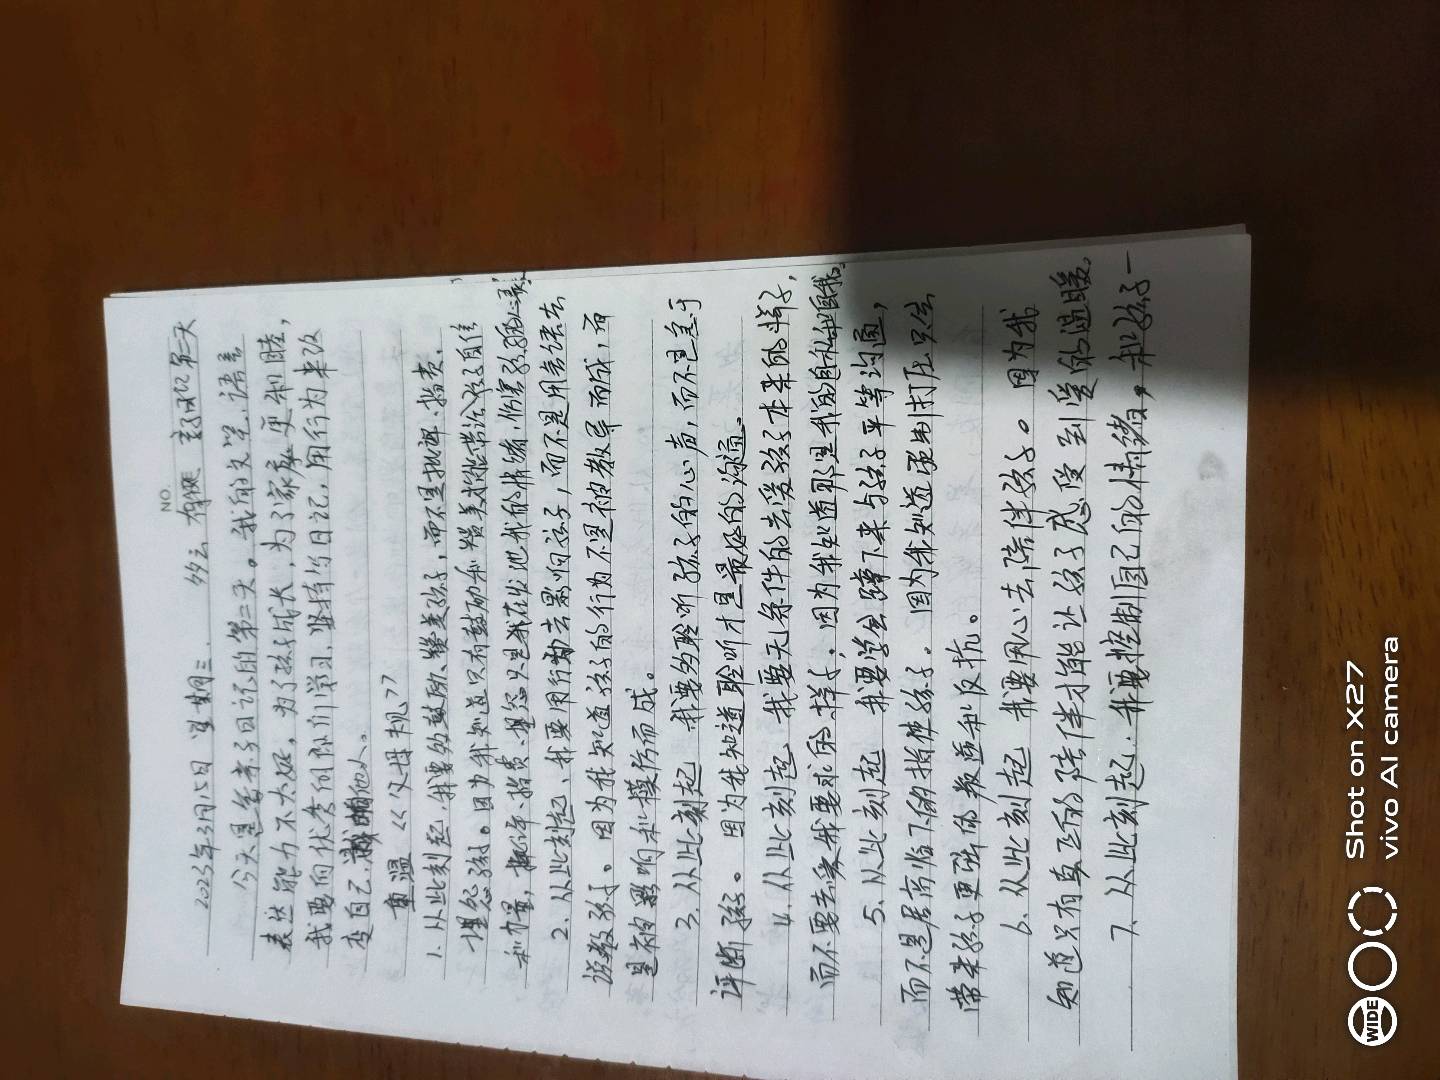 NO.
2023年3月15日 星期三. 多云 有侠 亲子日记 第三天
今天是坚持亲子日记的第三天。我的文笔、语言
表达能力不太好，为了孩子成长，为了家庭更和睦，
我要向优秀的团队们学习，坚持写日记，用行为来改
变自己,影响他人。
重温 <<父母规>>
1. 从此刻起，我要多鼓励、赞美孩子，而不是批评、指责、
埋怨孩子。因为我知道只有鼓励和赞美才能带给孩子自信
和力量，批评、指责、埋怨只是我在发泄我的情绪，伤害孩子的心灵.
2. 从此刻起、我要用行动去影响孩子，而不是用言语去
说教孩子。因为我知道孩子的行为不是被教导而成，而
是被影响和模仿而成。
3. 从此刻起 我要多聆听孩子的心声，而不是急于
评断孩子。因为我知道聆听才是最好的沟通。
4. 从此刻起 我要无条件的去爱孩子本来的样子，
而不要去爱我要求的样子，因为我知道那是我的自私和自我。
5. 从此刻起 我要学会蹲下来与孩子平等沟通，
而不是居高临下的指使孩子。因为我知道使用打压只会
带来孩子更强的叛逆和反抗。
6. 从此刻起 我要用心去陪伴孩子。因为我
知道只有真正的陪伴才能让孩子感受到爱的温暖。
7. 从此刻起. 我要控制自己的情绪，和孩子一
WIDE
Shot on X27
vivo AI camera